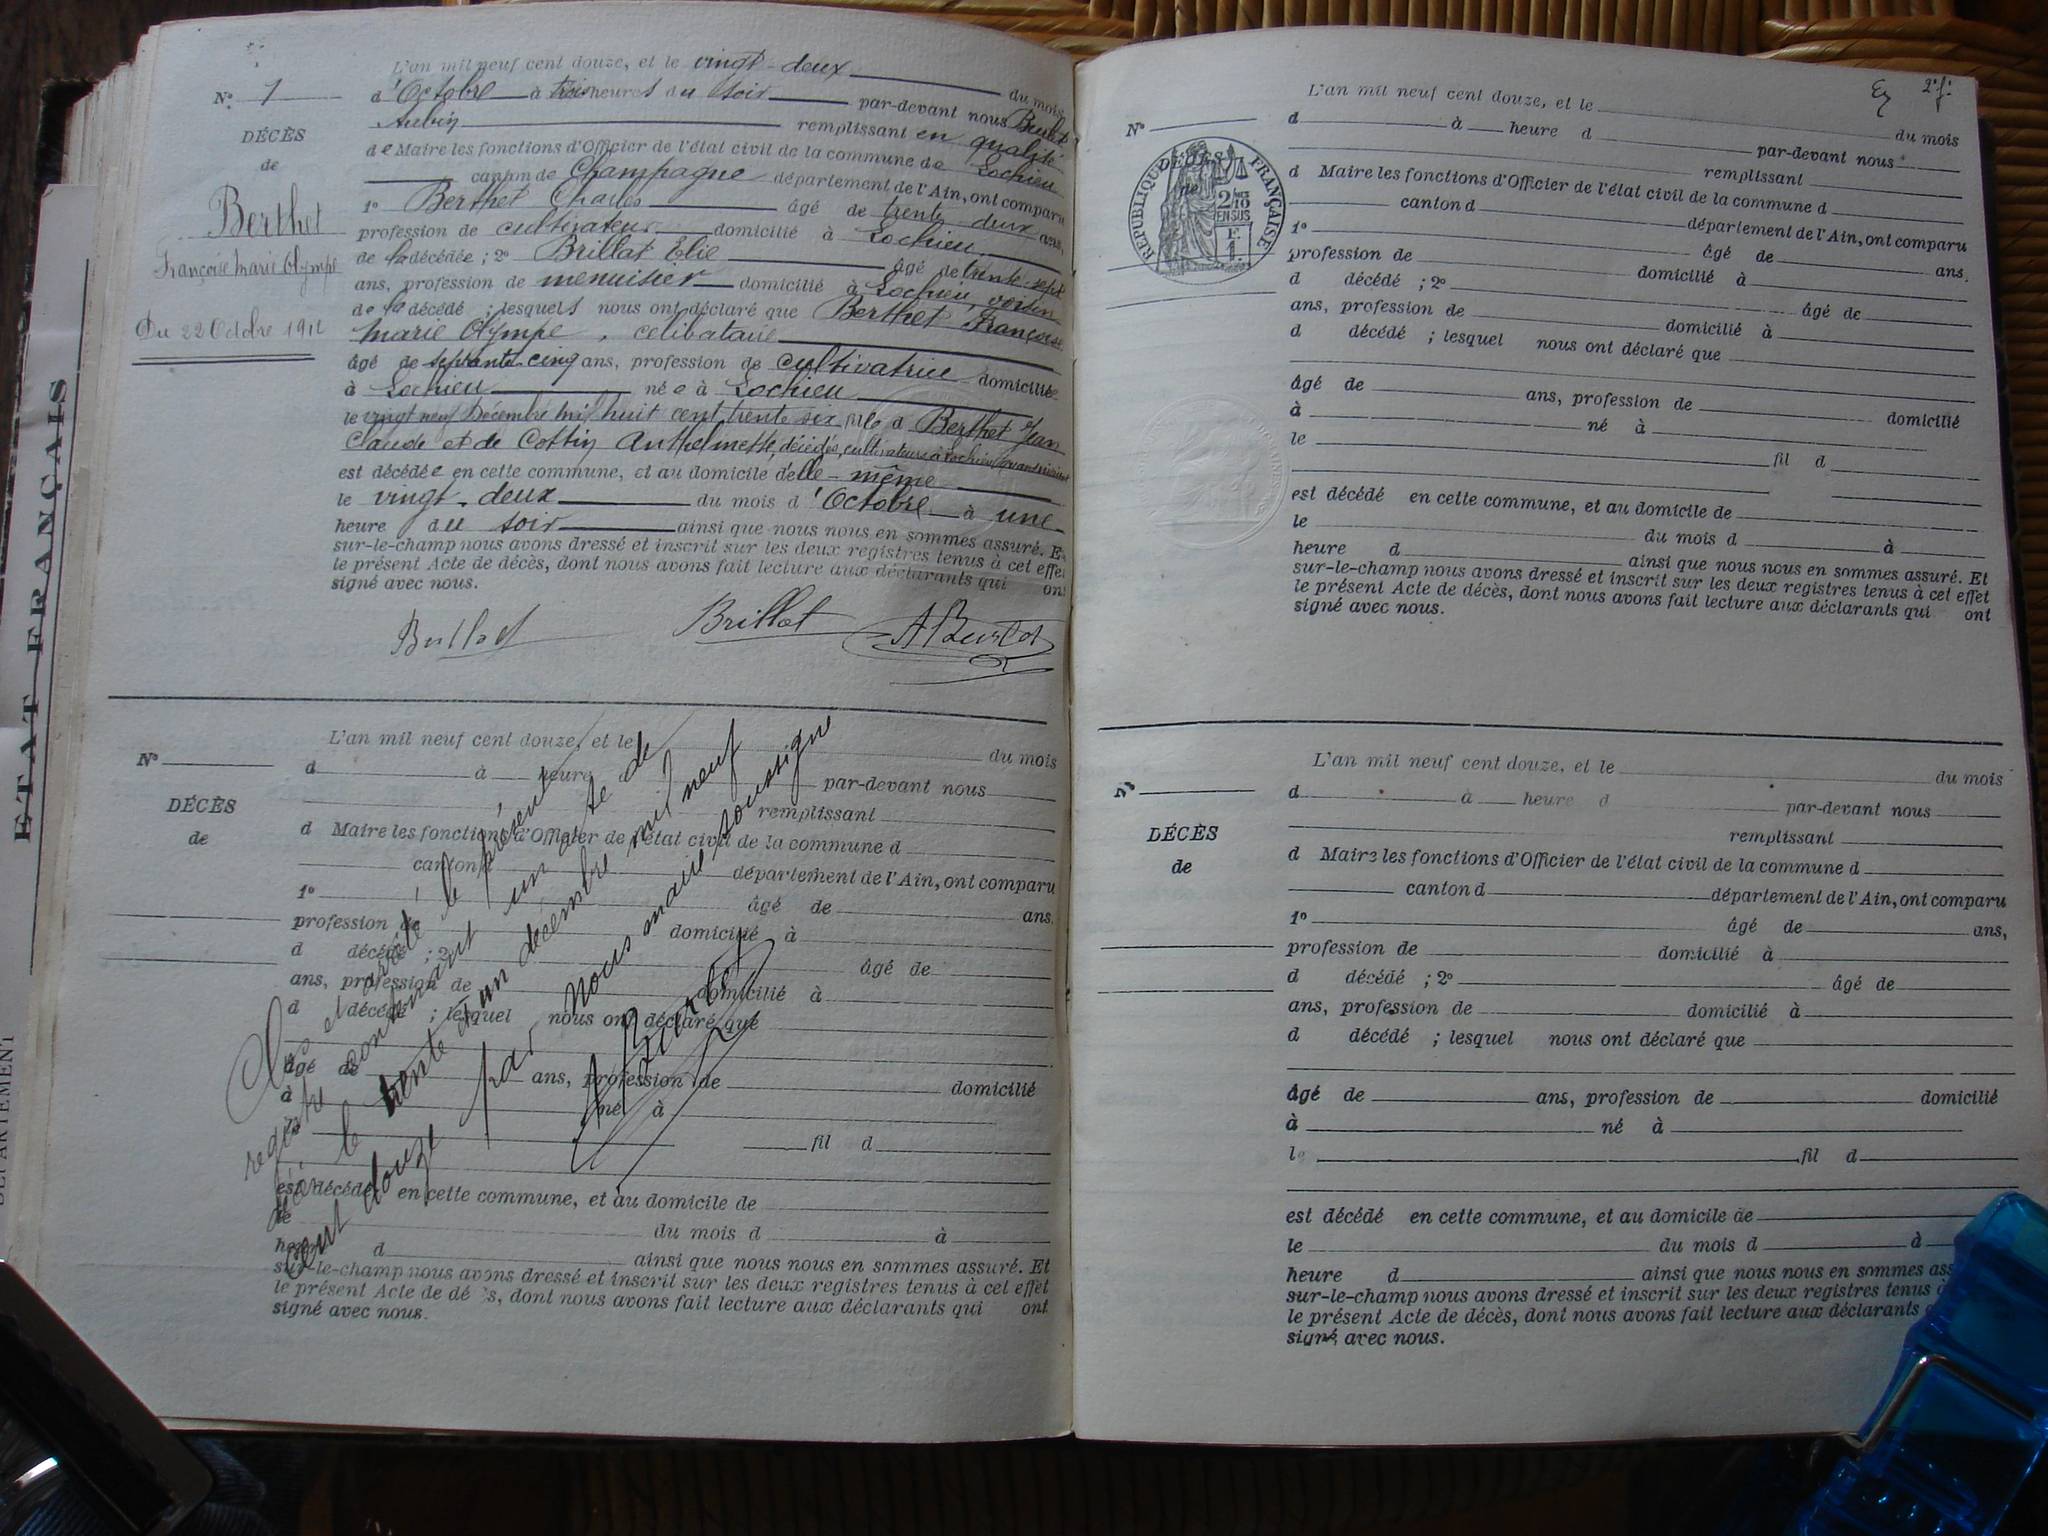 L'an mil neuf cent douze, et le vingt-deux du mois
d'Octobre à trois heures du soir par-devant nous Burlet
Aubin remplissant en qualité
de Maire les fonctions d'Officier de l'état civil de la commune de Lochieu
canton de Champagne département de l'Ain, ont comparu
1º Berthet Charles âgé de trente deux ans,
profession de cultivateur domicilié à Lochieu
de la décédée ; 2º Brillat Elie âgé de trente-sept
ans, profession de menuisier domicilié à Lochieu, voisin
de la décédé ; lesquels nous ont déclaré que Berthet Françoise
marie Olympe, célibataire
âgé de septante-cinq ans, profession de cultivatrice domiciliée
à Lochieu née à Lochieu
le vingt neuf Décembre mil huit cent trente six fille d Berthet Jean
Claude et de Cottin Anthelmette, décédés, cultivateurs à Lochieu
est décédée en cette commune, et au domicile d'elle-même
le vingt-deux du mois d'Octobre à une
heure du soir ainsi que nous nous en sommes assuré. Et
sur-le-champ nous avons dressé et inscrit sur les deux registres tenus à cet effet
le présent Acte de décès, dont nous avons fait lecture aux déclarants qui ont
signé avec nous.
Brillat A Burlet
Nº 7
DÉCÈS
de
Berthet
Françoise Marie Olympe
Du 22 Octobre 1912
Nº
DÉCÈS
de
L'an mil neuf cent douze, et le du mois
d à heure par-devant nous
remplissant
d Maire les fonctions d'Officier de l'état civil de la commune d
canton d département de l'Ain, ont comparu
1º âgé de ans.
profession de domicilié à
d décédé ; 2º âgé de
ans, profession de domicilié à
d décédé ; lesquel nous ont déclaré que
âgé de ans, profession de domicilié
à né à
le fil d
est décédé en cette commune, et au domicile de
le du mois d à
heure d ainsi que nous nous en sommes assuré. Et
sur-le-champ nous avons dressé et inscrit sur les deux registres tenus à cet effet
le présent Acte de décès, dont nous avons fait lecture aux déclarants qui ont
signé avec nous.
Clos et arrêté le présent
registre contenant un acte de
décès le trente et un décembre mil neuf
cent douze par nous maire soussigné
A Burlet
2e f.
L'an mil neuf cent douze, et le du mois
d à heure d par-devant nous
remplissant
d Maire les fonctions d'Officier de l'état civil de la commune d
canton d département de l'Ain, ont comparu
1º âgé de ans.
profession de domicilié à
d décédé ; 2º âgé de
ans, profession de domicilié à
d décédé ; lesquel nous ont déclaré que
âgé de ans, profession de domicilié
à né à
le fil d
est décédé en cette commune, et au domicile de
le du mois d à
heure d ainsi que nous nous en sommes assuré. Et
sur-le-champ nous avons dressé et inscrit sur les deux registres tenus à cet effet
le présent Acte de décès, dont nous avons fait lecture aux déclarants qui ont
signé avec nous.
Nº
DÉCÈS
de
RÉPUBLIQUE FRANÇAISE
2/10
EN SUS
F.
1.
L'an mil neuf cent douze, et le du mois
d à heure d par-devant nous
remplissant
d Maire les fonctions d'Officier de l'état civil de la commune d
canton d département de l'Ain, ont comparu
1º âgé de ans,
profession de domicilié à
d décédé ; 2º âgé de
ans, profession de domicilié à
d décédé ; lesquel nous ont déclaré que
âgé de ans, profession de domicilié
à né à
le fil d
est décédé en cette commune, et au domicile de
le du mois d à
heure d ainsi que nous nous en sommes ass
sur-le-champ nous avons dressé et inscrit sur les deux registres tenus à
le présent Acte de décès, dont nous avons fait lecture aux déclarants
signé avec nous.
Nº
DÉCÈS
de
ETAT FRANÇAIS
DEPARTEMENT